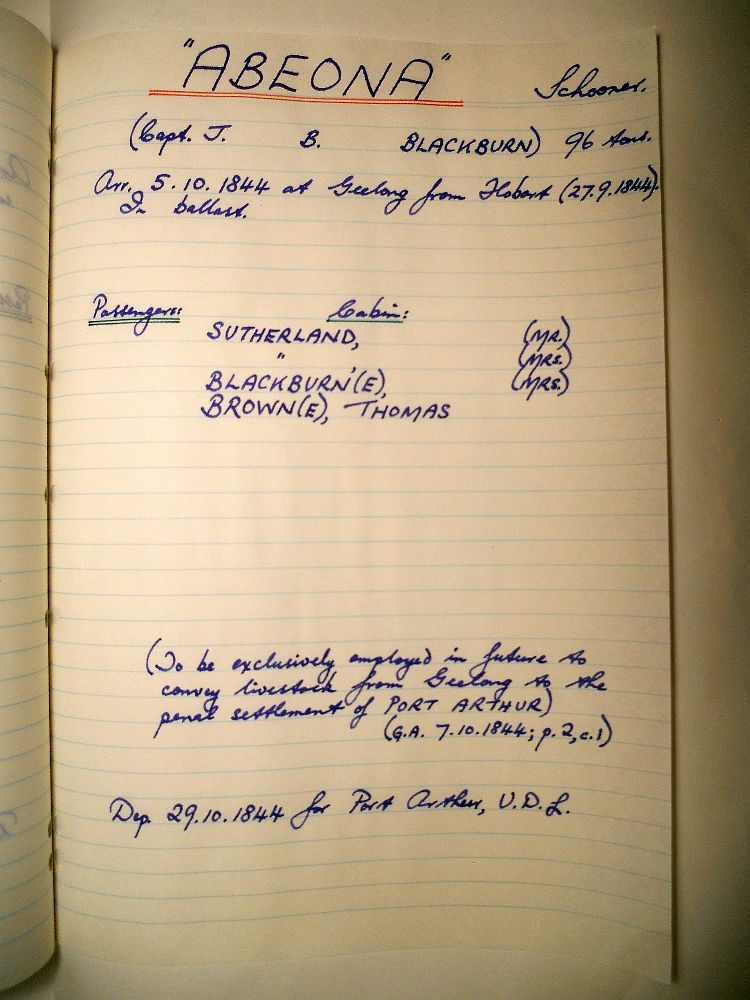 "ABEONA" Schooner.
(Capt. J. B. BLACKBURN) 96 tons.
Arr. 5.10.1844 at Geelong from Hobart (27.9.1844).
In ballast.
Passengers: Cabin:
SUTHERLAND, (MR.)
" , (MRS.)
BLACKBURN(E), (MRS.)
BROWN(E), THOMAS
(To be exclusively employed in future to
convey livestock from Geelong to the
penal settlement of PORT ARTHUR)
(G.A. 7.10.1844; p.2, c.1)
Dep. 29.10.1844 for Port Arthur, V.D.L.